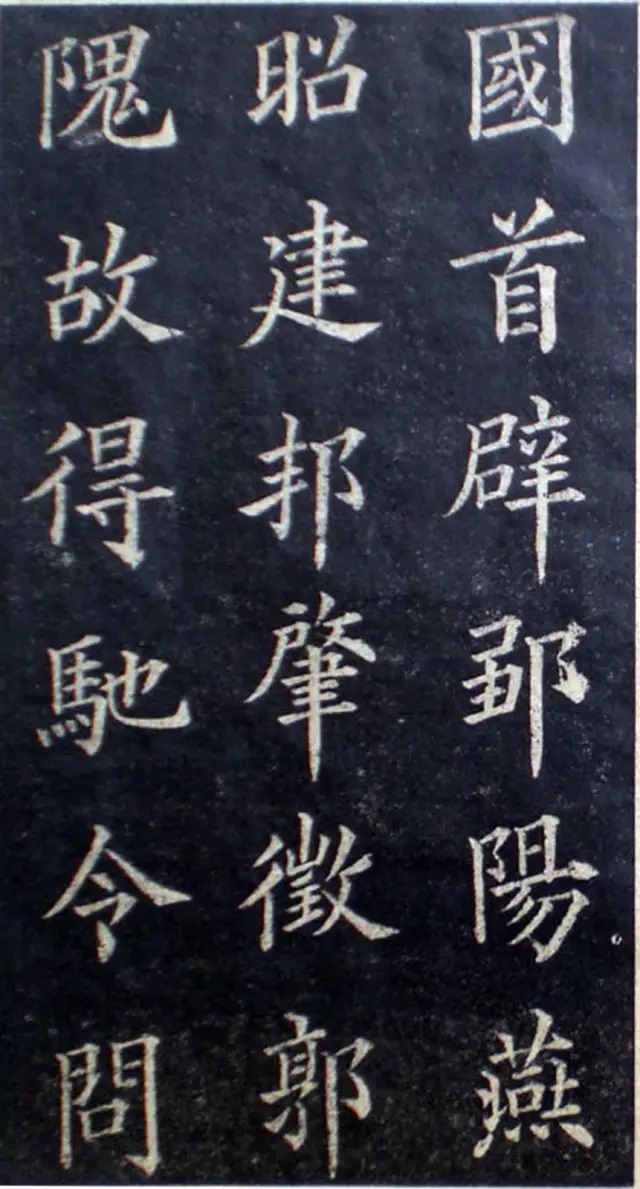 國首辟鄅陽燕
昭建邦肇徵郭
隗故得馳令問